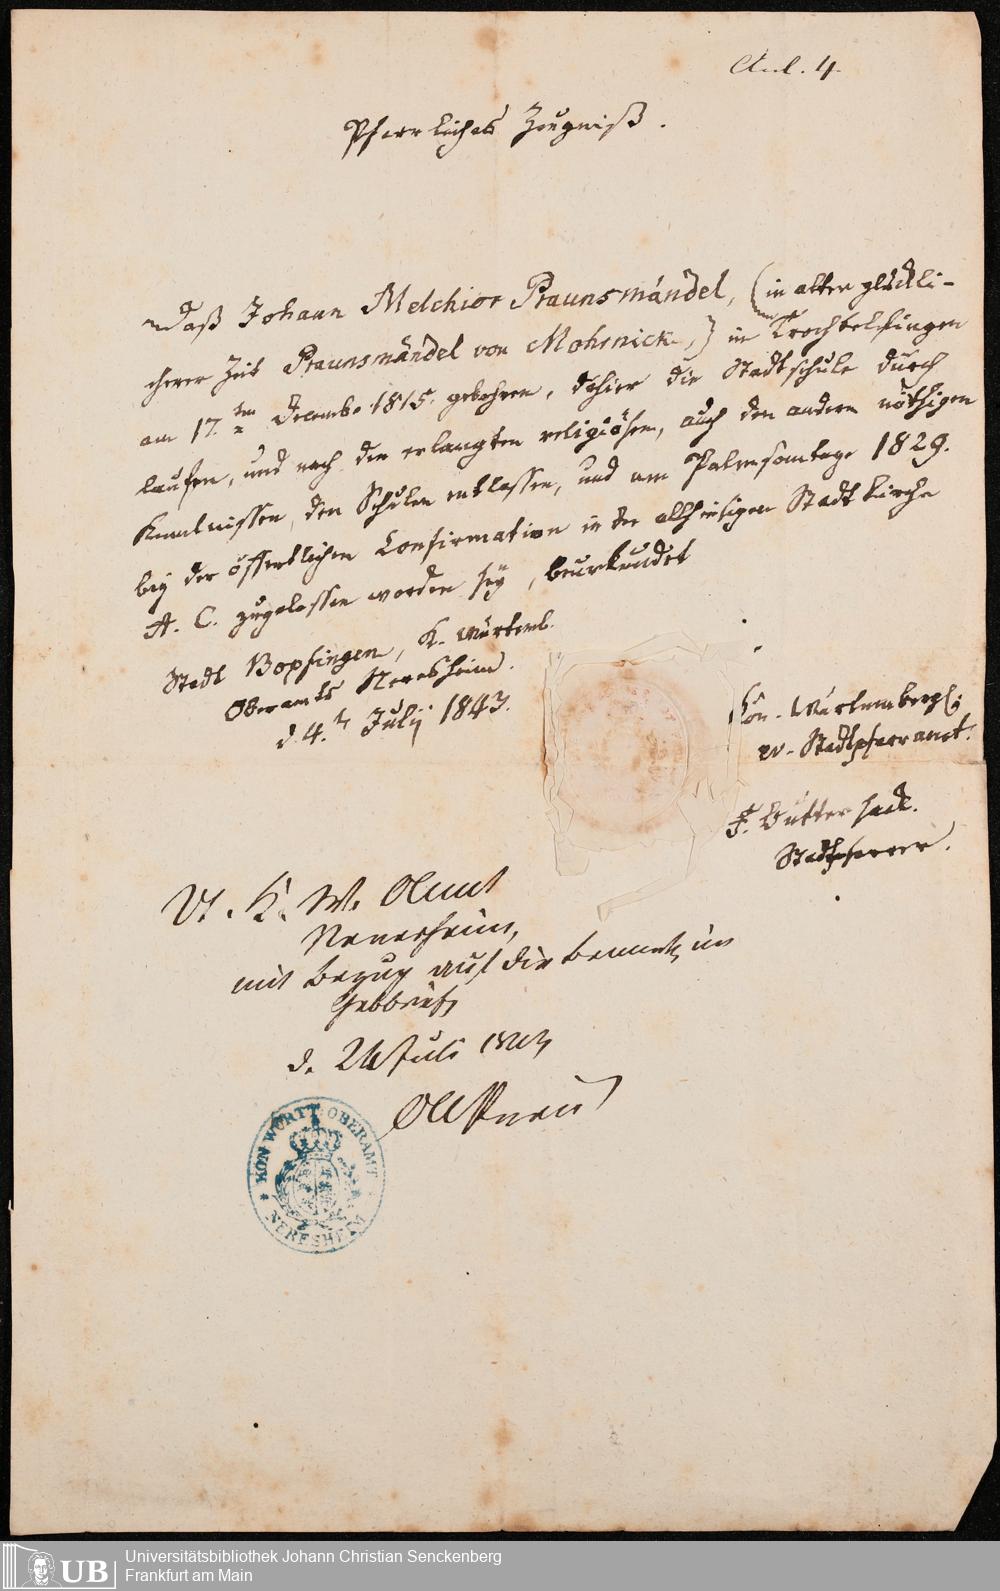 Anl. 4.
Pfarrliches Zeugniß.
Daß Johann Melchior Praunsmändel, (in alter glückli-
cherer Zeit Praunsmändel von Mohrnick,) in Trochtelfingen
am 17.ten Decembr. 1815. gebohren, dahier die Stadtschule durch
laufen, und nach den erlangten religiösen, auch den andern nöthigen
Kenntnissen, den Schulen entlassen, und am Palmsontage 1829.
bey der öffentlichen Confirmation in der allhiesigen Stadtkirche
A. C. zugelassen worden sey, beurkundet
Stadt Bopfingen, K. Würtemb.
Oberamts Neresheim.
d. 4.t July 1843.
Kön. Würtembergl.
ev. Stadtpfarramt.
Stadtpfarrer.
Vt. K. W. OAmt
Neresheim,
mit Bezug auf die
d. 24 Juli
KÖN WÜRTT. OBERAMT
NERESHEIM
UB
Universitätsbibliothek Johann Christian Senckenberg
Frankfurt am Main